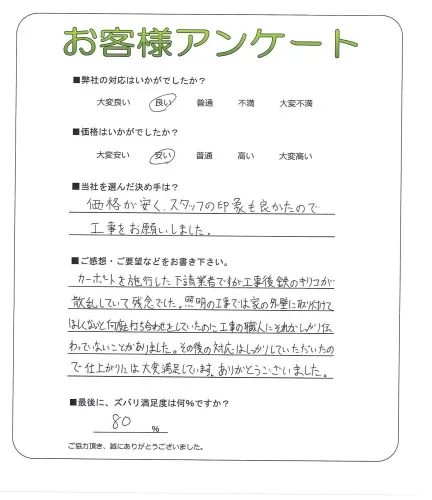 お客様アンケート
■弊社の対応はいかがでしたか?
大変良い 良い 普通 不満 大変不満
■価格はいかがでしたか?
大変安い 安い 普通 高い 大変高い
■当社を選んだ決め手は?
価格が安く、スタッフの印象も良かたので
工事をお願いしました。
■ご感想・ご要望などをお書き下さい。
カーポートを施行した下請業者ですが工事後鉄のキリコが
散乱していて残念でした。照明の工事では家の外壁に取り付けて
ほしくないと何度打ち合わせをしていたのに工事の職人にそれがしっかり伝
わっていないことがありました。その後の対応はしっかりしていただいたの
で仕上がりには大変満足しています。ありがとうございました。
■最後に、ズバリ満足度は何%ですか?
80 %
ご協力頂き、誠にありがとうございました。